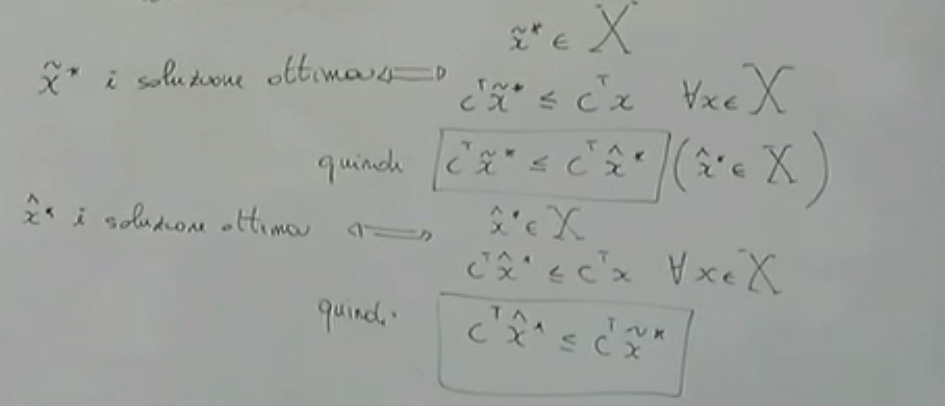 x̃* ∈ X
x̃* è soluzione ottima ⟺
cᵀx̃* ≤ cᵀx ∀x∈ X
quindi cᵀx̃* ≤ cᵀx̂* (x̂*∈ X)
x̂* è soluzione ottima ⟺ x̂*∈ X
cᵀx̂* ≤ cᵀx ∀x∈ X
quindi
cᵀx̂* ≤ cᵀx̃*